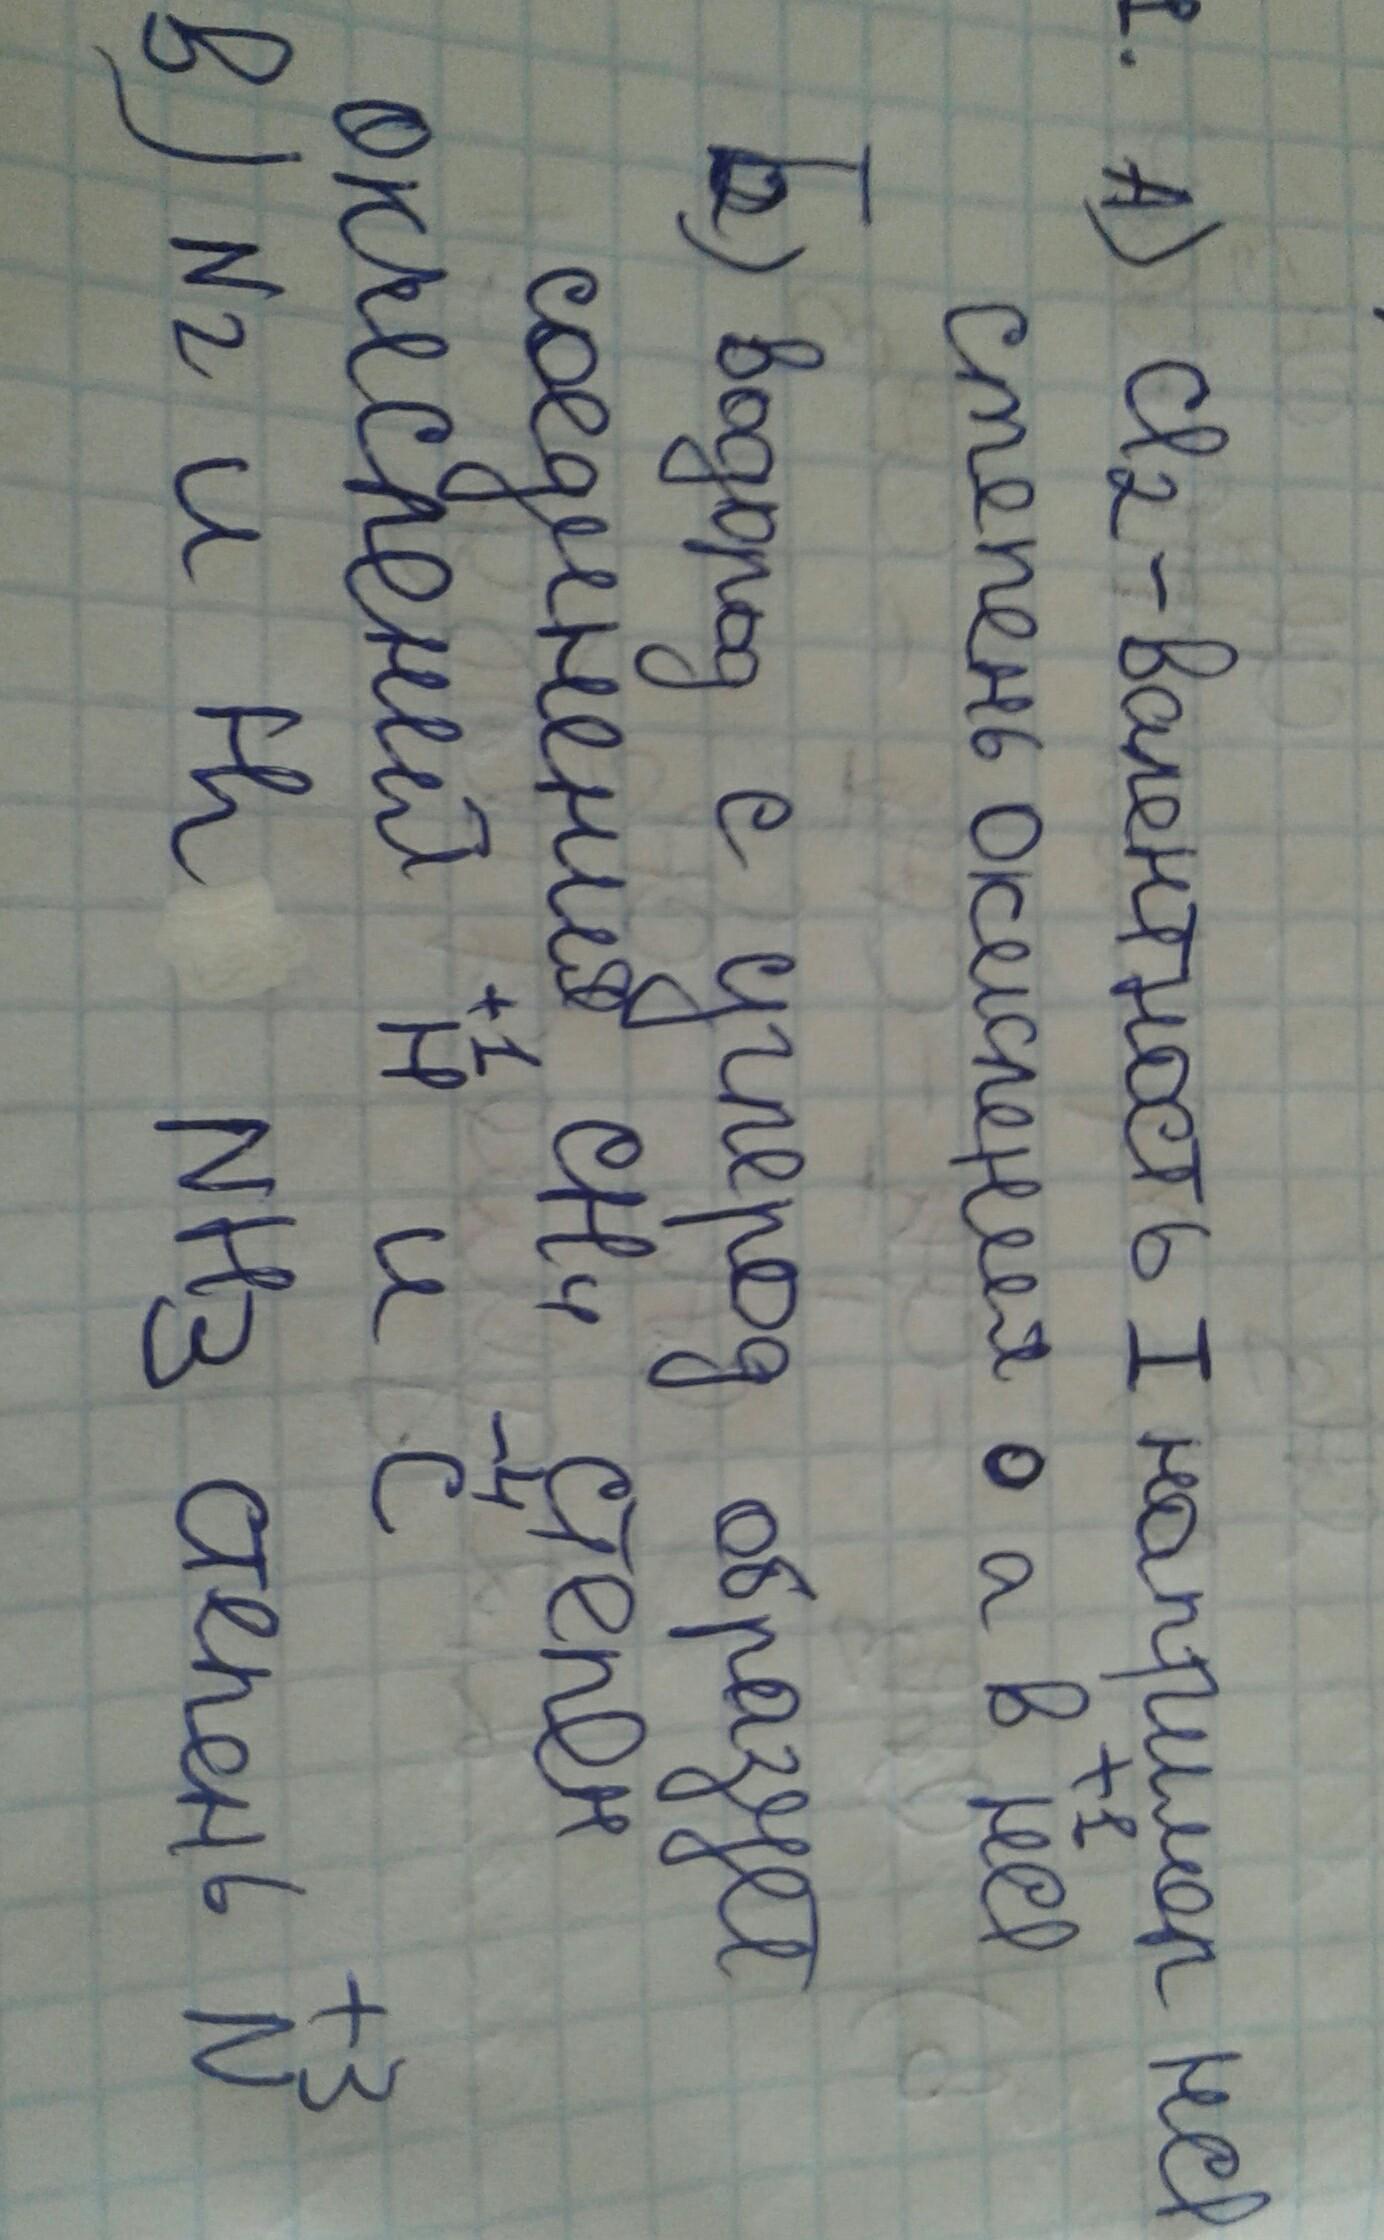 1. А) Cl2 - валентность I например HCl
степень окисления 0 а в H+1Cl
Б) водород с углерод образует
соеденения CH4 Степен
окисрений H+1 и C-4
В) N2 и H2 NH3 степень N+3